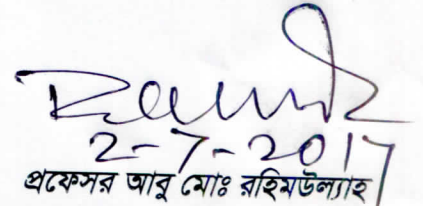 2-7-2017
প্রফেসর আবু মোঃ রহিমউল্যাহ